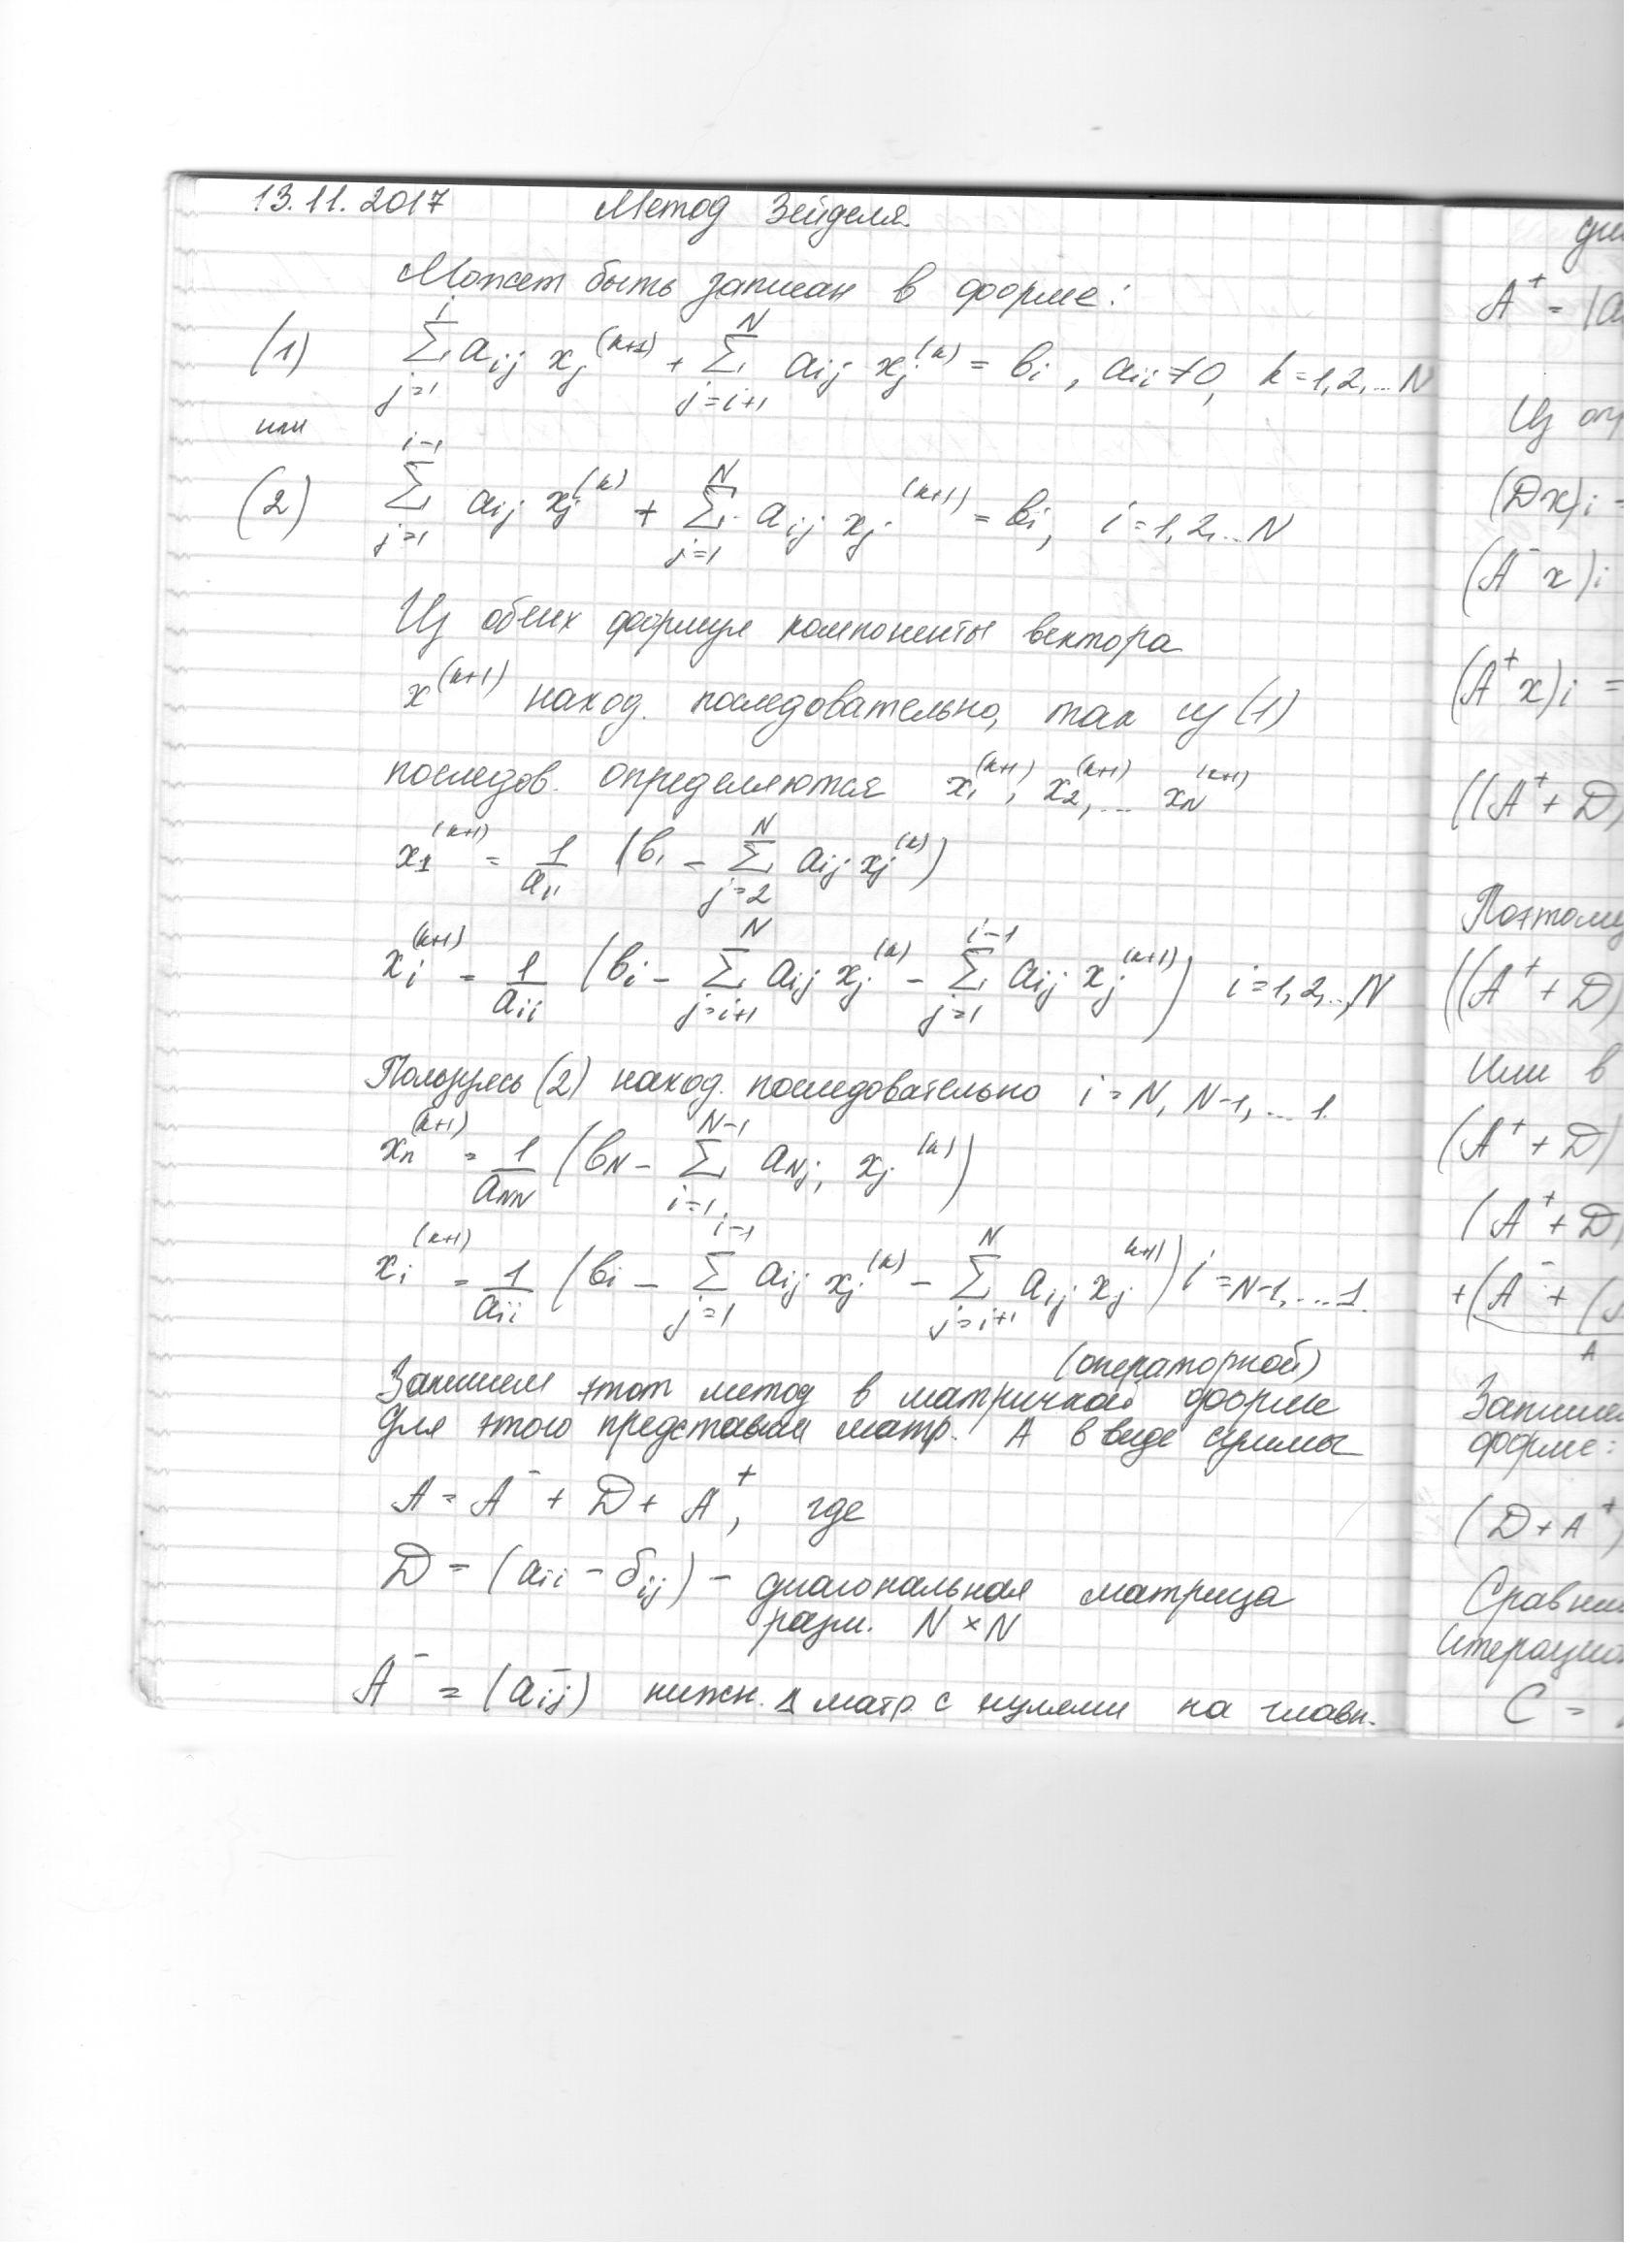 13.11.2017 Метод Зейделя.
Может быть записан в форме:
(1) \sum_{j=1}^{i} a_{ij} x_j^{(k+1)} + \sum_{j=i+1}^{N} a_{ij} x_j^{(k)} = b_i, a_{ii} ≠ 0, k = 1, 2, ... N
или
(2) \sum_{j=1}^{i-1} a_{ij} x_j^{(k)} + \sum_{j=1}^{N} a_{ij} x_j^{(k+1)} = b_i, i = 1, 2, ... N
Из обеих формул компоненты вектора
x^{(k+1)} наход. последовательно, так из (1)
последов. определяются x_1^{(k+1)}, x_2^{(k+1)}, ... x_N^{(k+1)}
x_1^{(k+1)} = \frac{1}{a_{11}} (b_1 - \sum_{j=2}^{N} a_{ij} x_j^{(k)})
x_i^{(k+1)} = \frac{1}{a_{ii}} (b_i - \sum_{j=i+1}^{N} a_{ij} x_j^{(k)} - \sum_{j=1}^{i-1} a_{ij} x_j^{(k+1)}) i = 1, 2, ..., N
Пользуясь (2) наход. последовательно i = N, N-1, ... 1.
x_n^{(k+1)} = \frac{1}{a_{NN}} (b_N - \sum_{i=1}^{N-1} a_{Nj} x_j^{(k)})
x_i^{(k+1)} = \frac{1}{a_{ii}} (b_i - \sum_{j=1}^{i-1} a_{ij} x_j^{(k)} - \sum_{j=i+1}^{N} a_{ij} x_j^{k+1)}) i = N-1, ... 1.
(операторной)
Запишем этот метод в матричной форме
Для этого представим матр. A в виде суммы
A = A^- + D + A^+, где
D = (a_{ii} - δ_{ij}) - диагональная матрица
разм. N × N
A^- = (a_{ij}^-) нижн. Δ матр. с нулями на главн.
A^+ = (a
Из
(Dx)_i =
(A^- x)_i
(A^+ x)_i =
((A^+ + D)
Поэтому
((A^+ + D)
Или в
(A^+ + D)
(A^+ + D)
+(A^- + (
A
форме:
(D + A^+)
C =